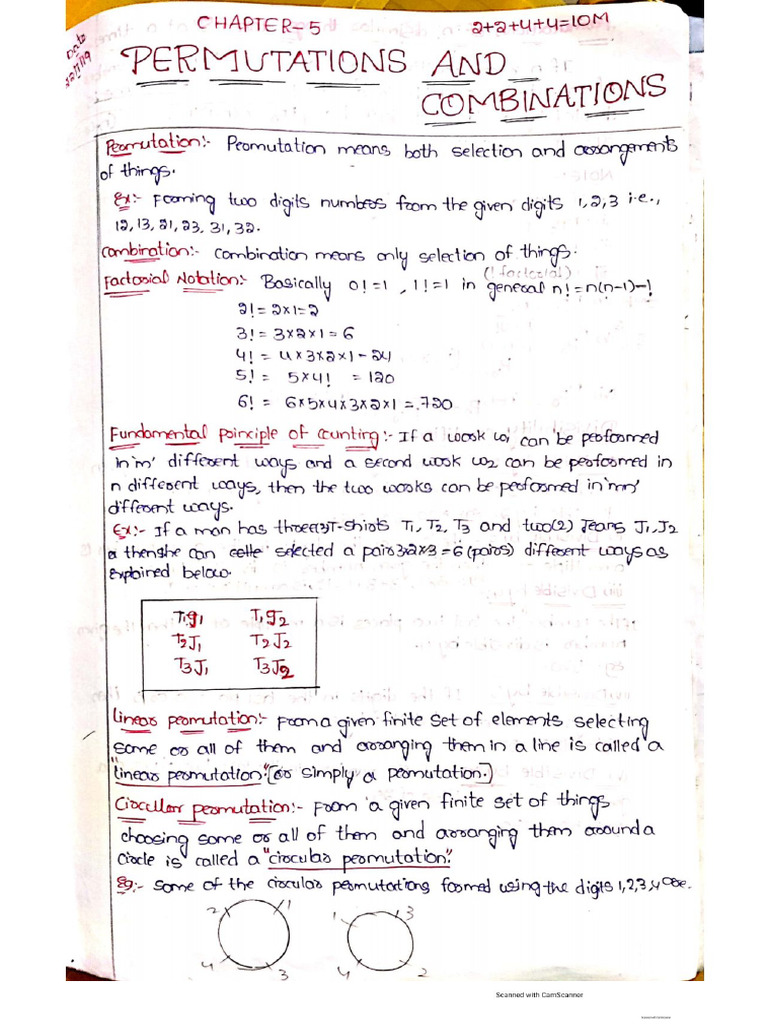 CHAPTER-5
2+2+4+4=10M
Date
PERMUTATIONS AND
COMBINATIONS
Permutation:- Permutation means both selection and arrangements
of things.
Ex:- Forming two digits numbers from the given digits 1,2,3 i.e.,
12,13,21,23,31,32.
Combination:- Combination means only selection of things.
(! factorial)
Factorial Notation:- Basically 0!=1 , 1!=1 in general n!=n(n-1)-!
2!=2x1=2
3!= 3x2x1=6
4!= 4x3x2x1-24
5!= 5x4! =120
6!= 6x5x4x3x2x1=720
Fundamental principle of counting:- If a work w1 can be performed
in'm' different ways and a second work w2 can be performed in
n different ways, then the two works can be performed in'mn'
different ways.
Ex:- If a man has three(3)T-Shirts T1, T2, T3 and two(2) Jeans J1, J2
then he can selected a pair 3x2x3=6 (pairs) different ways as
explained below.
T1J1 T1J2
T2J1 T2J2
T3J1 T3J2
Linear permutation:- From a given finite set of elements selecting
some or all of them and arranging them in a line is called a
"linear permutation"[or simply a permutation.]
Circular permutation:- From a given finite set of things
choosing some or all of them and arranging them around a
circle is called a "circular permutation".
Eg:- Some of the circular permutations formed using the digits 1,2,3,4 are.
2 1 1 3
4 3 4 2
Scanned with CamScanner